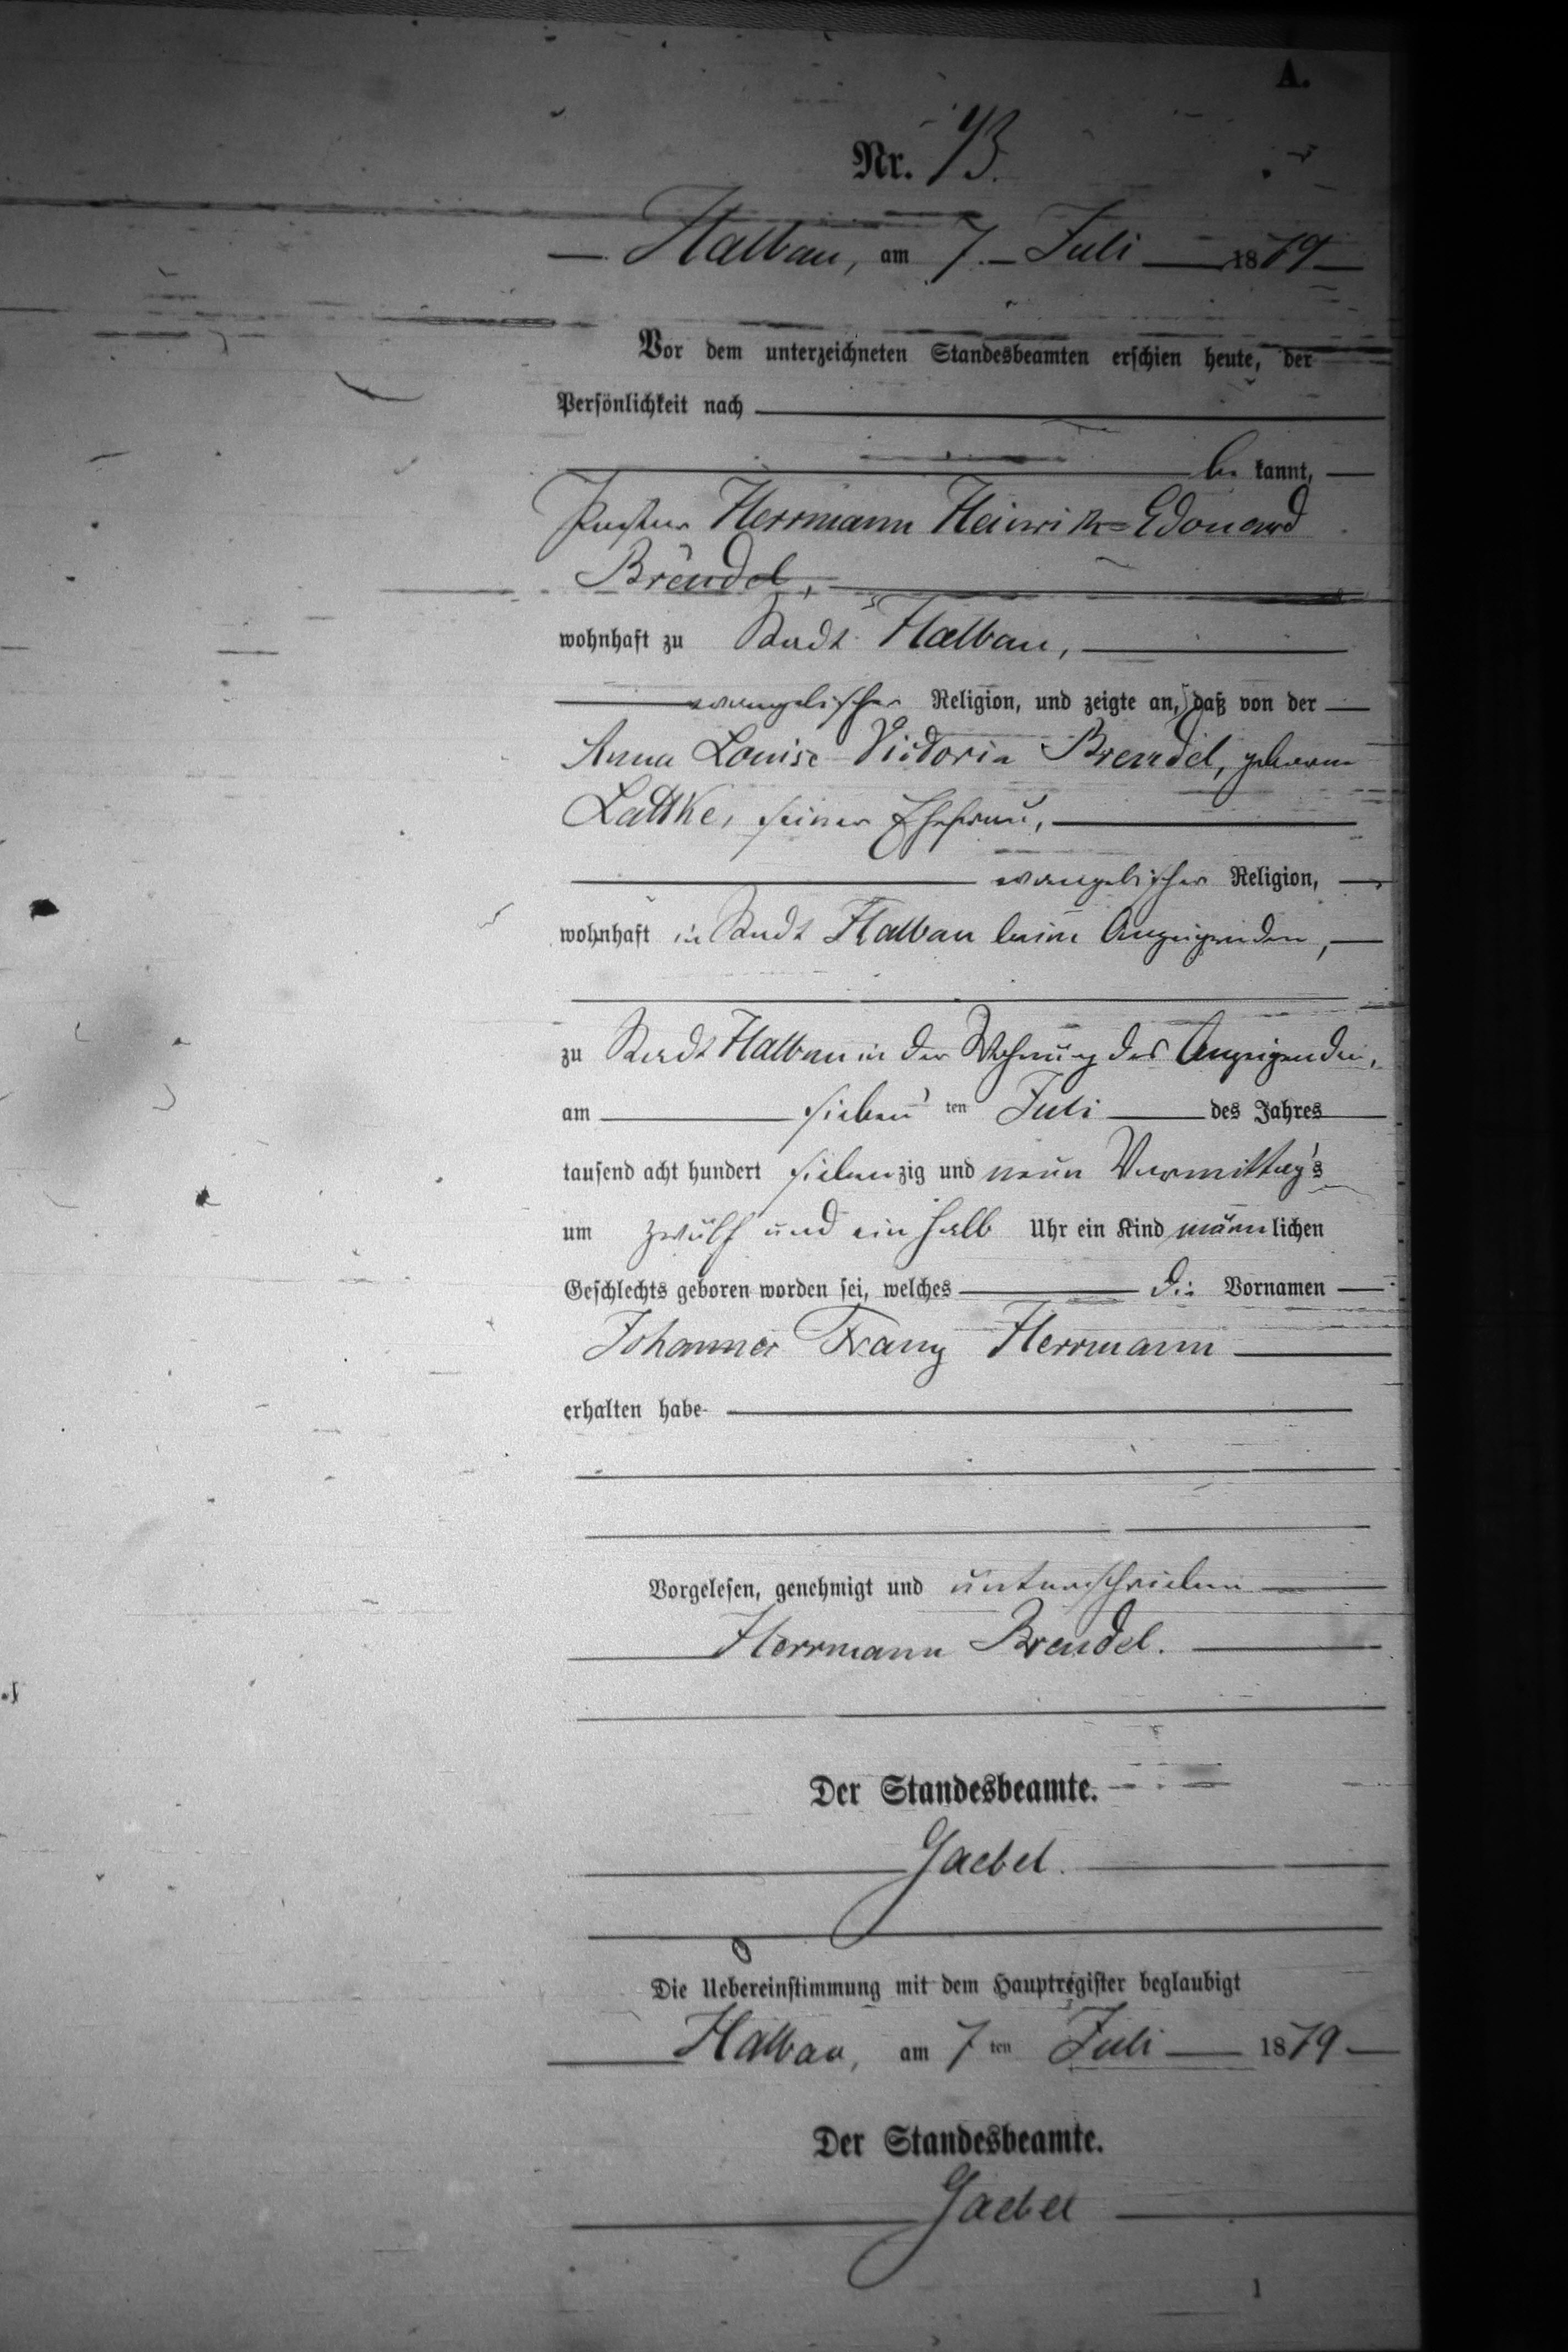 A.
Nr. 73.
Halbau, am 7. Juli 1879
Vor dem unterzeichneten Standesbeamten erschien heute, der
Persönlichkeit nach
be kannt,
Pastor Herrmann Heinrich Edouard
Brendel,
wohnhaft zu Stadt Halbau,
evangelischer Religion, und zeigte an, daß von der
Anna Louise Victoria Brendel, geborene
Lattke, seiner Ehefrau,
evangelischer Religion,
wohnhaft in Stadt Halbau beim Anzeigenden,
zu Stadt Halbau in der Wohnung des Anzeigenden,
am sieben ten Juli des Jahres
tausend acht hundert siebenzig und neun Vormittags
um zwölf und ein halb Uhr ein Kind männlichen
Geschlechts geboren worden sei, welches die Vornamen
Johannes Franz Herrmann
erhalten habe
Vorgelesen, genehmigt und unterschrieben
Herrmann Brendel.
Der Standesbeamte.
Gaebel.
Die Uebereinstimmung mit dem Hauptregister beglaubigt
Halbau, am 7 ten Juli 1879
Der Standesbeamte.
Gaebel
1